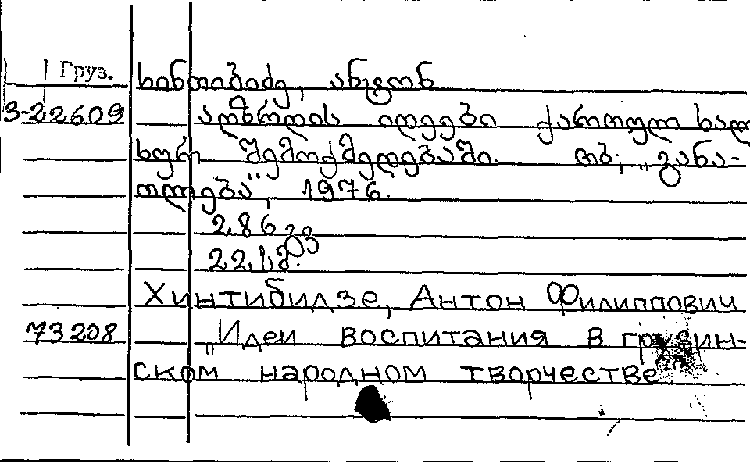 Груз.
ხინთიბიძე, ანტონ
3-22609 აღზრდის იდეები ქართულ ხალ
ხურ შემოქმედებაში. თბ., „განა-
თლება", 1976.
286 გვ
22 სმ.
Хинтибидзе, Антон Филиппович
73208 „Идеи воспитания в грузин-
ском народном творчестве